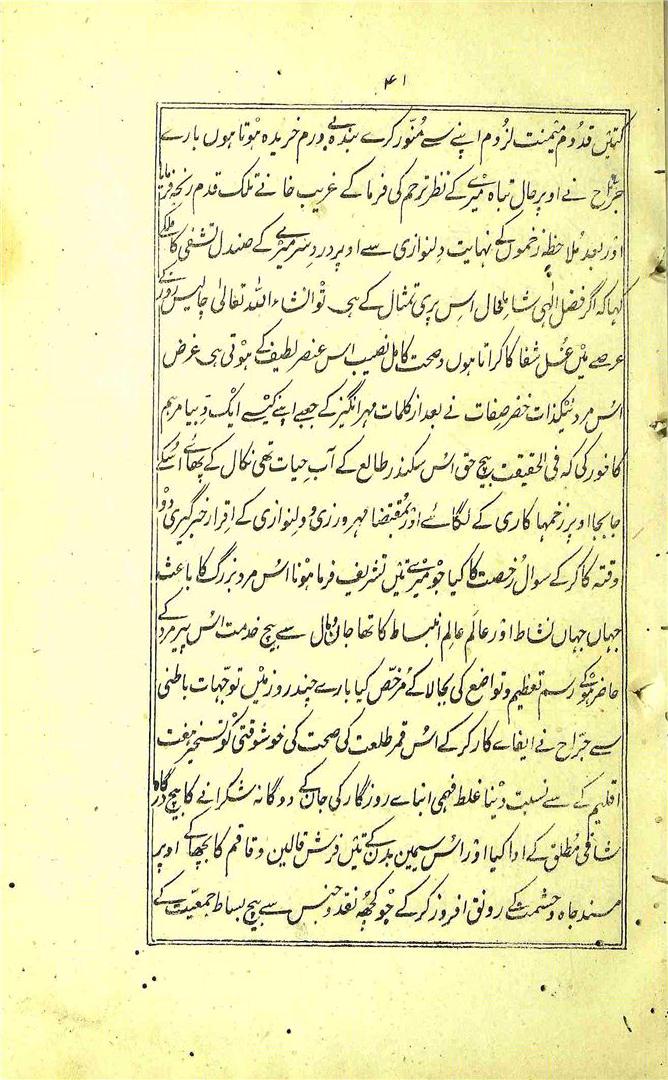 ۴۱
کتئیں قدوم میمنت لزوم اپنے سے منور کرے بندہ بے درم خریدہ ہوتا ہوں بارے
جراح نے اوپر حال تباہ میرے کے نظر ترحم کی فرما کے غریب خانے تلک قدم رنجہ فرمایا
اور بعد ملاحظہ زخموں کے نہایت دلنوازی سے اوپر درد سر میرے کے صندل تشفی کا ملکے
کہا کہ اگر فضل الٰہی شامل حال اس پری تمثال کے ہی تو انشاء اللہ تعالیٰ چالیس روز کے
عرصے میں غسل شفا کا کراتا ہوں وصحت کامل نصیب اس عنصر لطیف کے ہوتی ہی غرض
اس مرد نیکذات خضر صفات نے بعد از کلمات مہر انگیز کے جیب اپنے کیسے ایک دبیا مرہم
کافور کی کہ فی الحقیقت بیچ حق اس سکندر طالع کے آب حیات تھی نکال کے پھائے اسکے
جابجا اوپر زخمہا کاری کے لگائے اور بمقتضا مہر ورزی و دلنوازی کے اقرار خبر گیری دو
وقتہ کا کر کے سوال رخصت کا کیا جو میرے تئیں تشریف فرما ہونا اس مرد بزرگ کا باعث
جہاں جہاں نشاط اور عالم عالم انبساط کا تھا جان و مال سے بیچ خدمت اس پیر مرد کے
حاضر ہو کے رسم تعظیم و تواضع کی بجا لا کے مرخص کیا بارے چند روز میں توجہات باطنی
سے جراح نے ایفاے کار کر کے اس قمر طلعت کی صحت کی خوشوقتی کو تسخیر ہفت
اقلیم کے سے نسبت دینا غلط فہمی ابناے روزگار کی جان کے دوگانہ شکرانے کا بیچ درگاہ
شافی مطلق کے ادا کیا اور اس سیمین بدن کے تئیں فرش قالین و قاقم کا بچھا کے اوپر
مسند جاہ و حشمت کے رونق افروز کر کے جو کچھ نقد و جنس سے بیچ بساط جمعیت کے